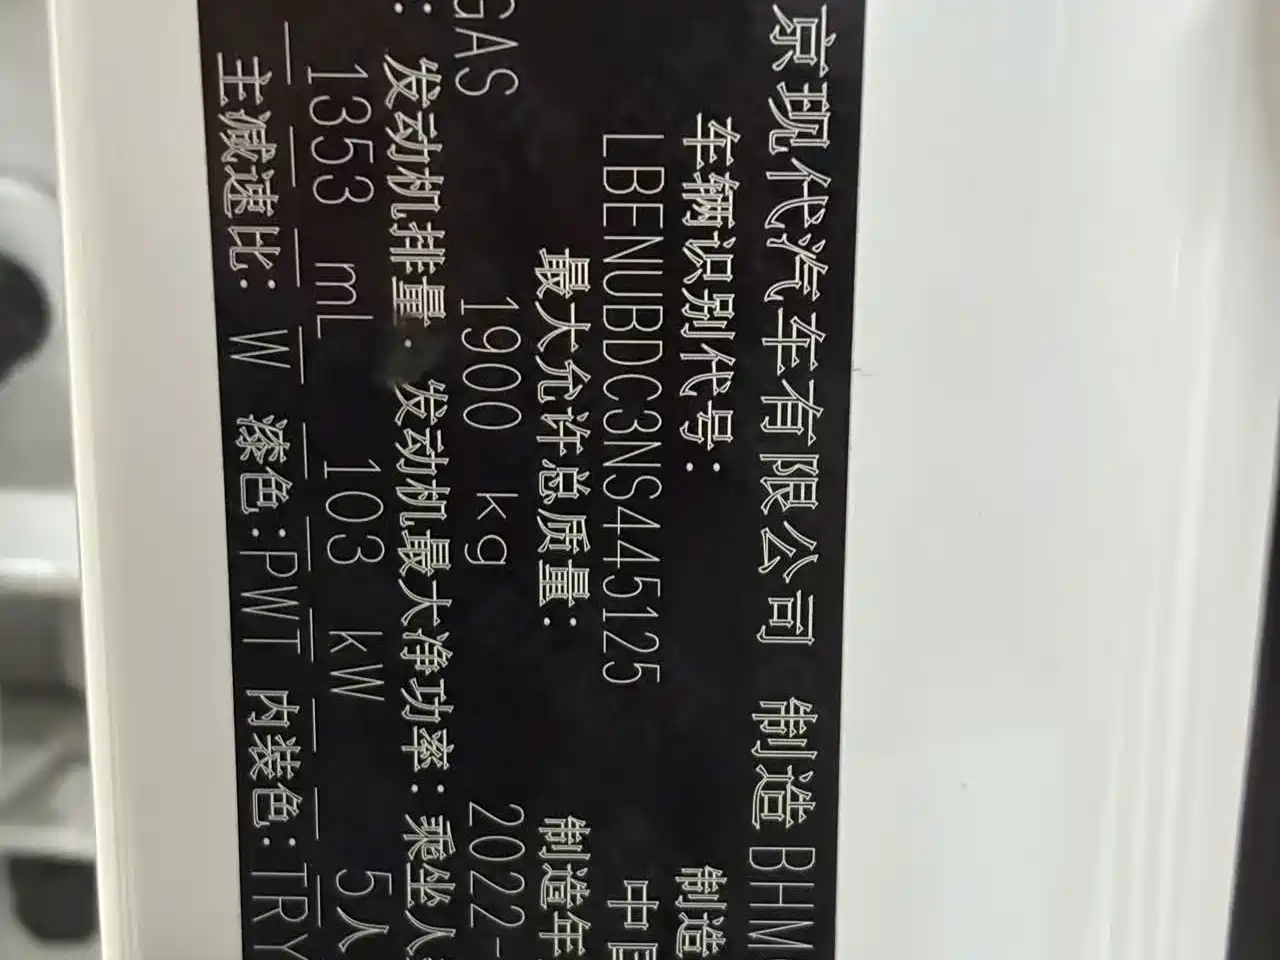 京现代汽车有限公司 制造 BHM
车辆识别代号: 制造
LBENUBDC3NS445125 中国
最大允许总质量: 制造年
GAS 1900 kg 2022-
发动机排量: 发动机最大净功率: 乘坐人
1353 mL 103 kW 5人
主减速比: W 漆色:PWT 内装色:TRY